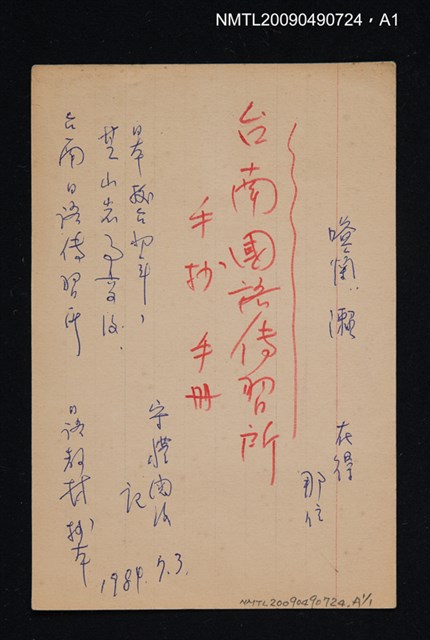 NMTL20090490724，A1
台南國語傳習所
手抄 手冊
在得
那位
日本據台初年，
芝山岩事變後，
台南日語傳習所
日語教材抄本
記
1984.9.3.
NMTL20090490724.A1/1